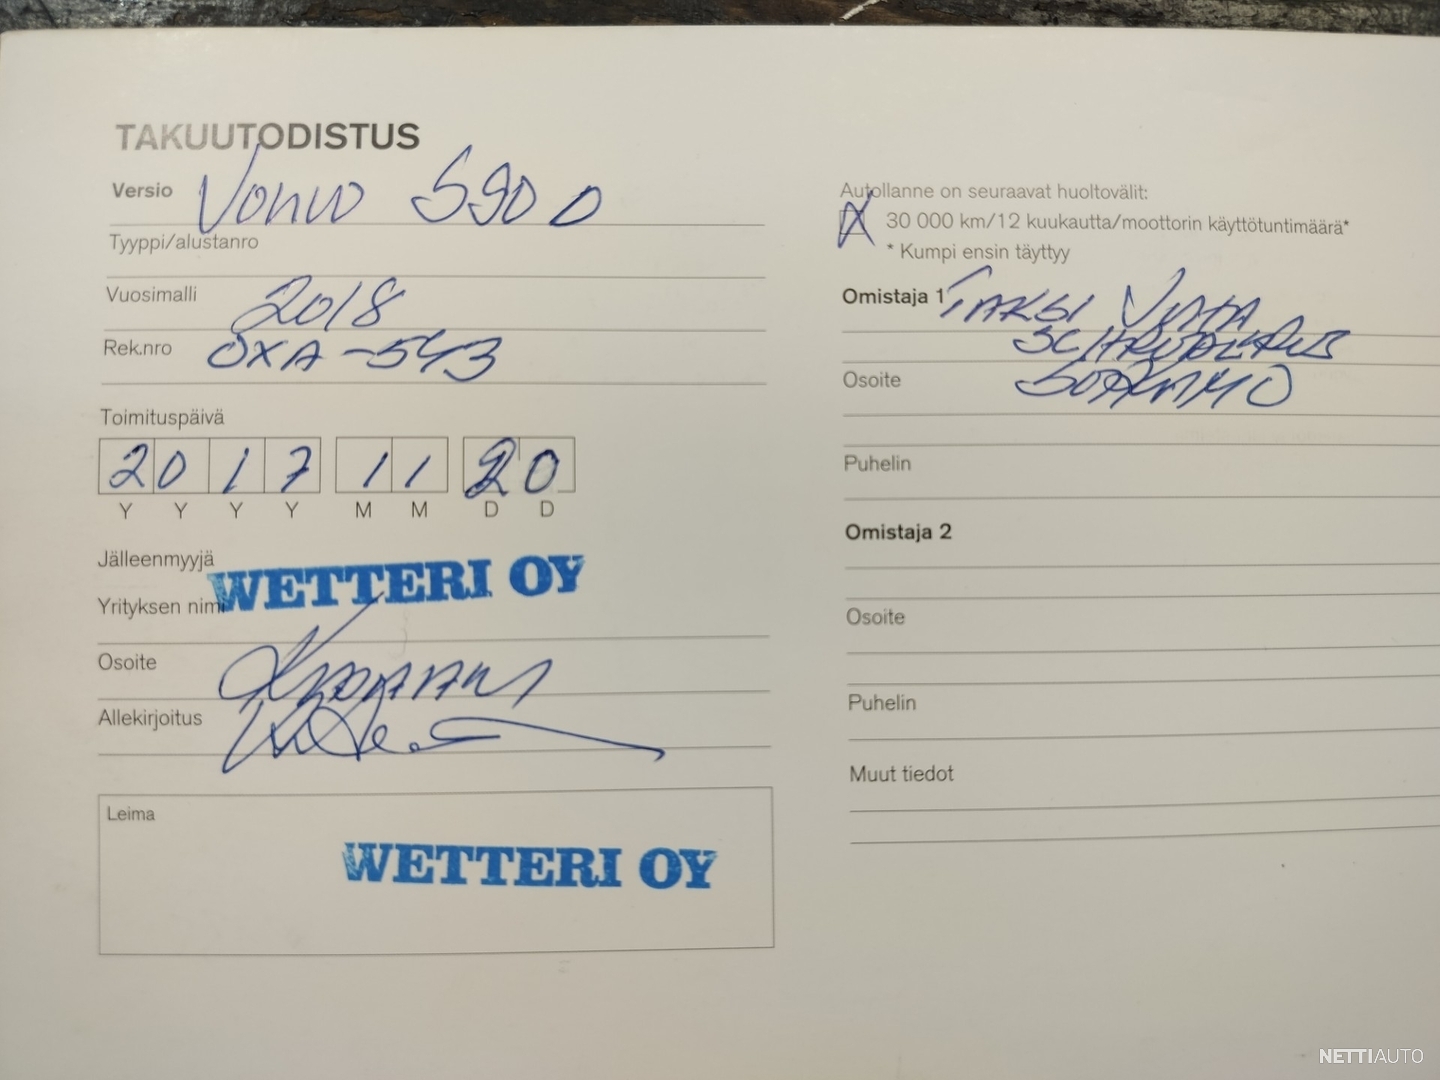 TAKUUTODISTUS
Versio Volvo S90 D
Tyyppi/alustanro
Vuosimalli 2018
Rek.nro OXA-543
Toimituspäivä
2017 11 20
Y Y Y Y M M D D
Jälleenmyyjä
Yrityksen nimi WETTERI OY
Osoite
Allekirjoitus
Leima
WETTERI OY
Autollanne on seuraavat huoltovälit:
X 30 000 km/12 kuukautta/moottorin käyttötuntimäärä*
* Kumpi ensin täyttyy
Omistaja 1 TAKSI JUHA
Osoite
Puhelin
Omistaja 2
Osoite
Puhelin
Muut tiedot
NETTIAUTO